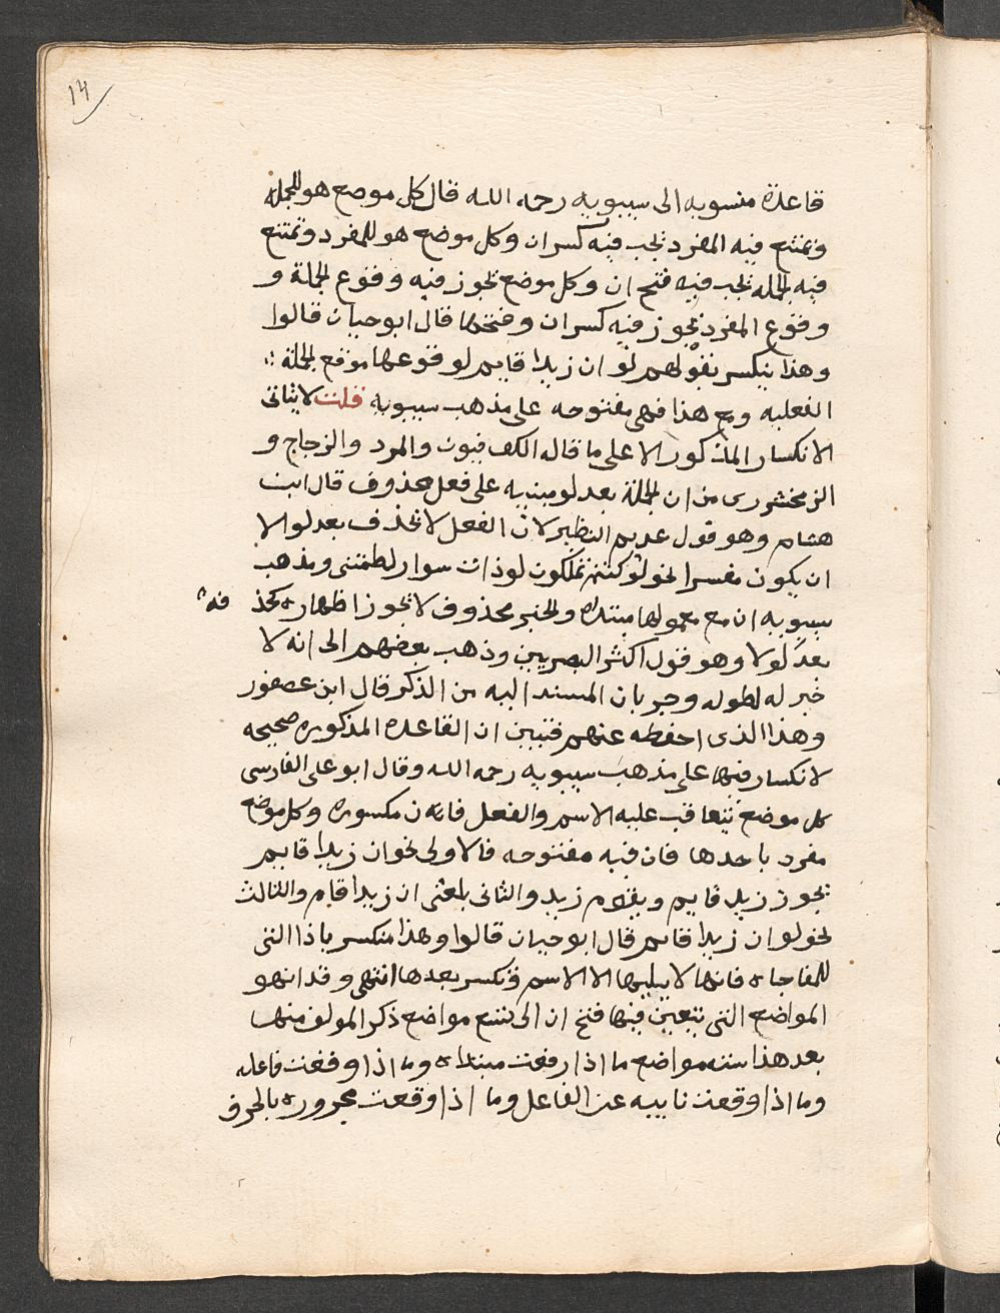 14
قاعدة منسوبه الى سيبويه رحمه الله قال كل موضع هو للجملة
وتمتنع فيه المفرد تجب فيه كسران وكل موضع هو للمفرد وتمتنع
فيه الجمله تجب فيه فتح ان وكل موضع تجوز فيه وقوع الجملة و
وقوع المفرد تجوز فيه كسران وفتحها قال ابوحيان قالوا
وهذا ينكسر بقولهم لو ان زيدا قايم لوقوعها موقع الجملة
الفعليه ومع هذا فهى مفتوحه على مذهب سيبويه قلت لا يتاتى
الانكسار المذكور الا على ما قاله الكوفيون والمبرد والزجاج و
الزمخشرى من ان الجملة بعد لو مبنيه على فعل محذوف قال ابن
هشام وهو قول عديم النظير لان الفعل لا تحذف بعد لو الا
ان يكون مفسرا نحو لو كنتم تملكون لو ذات سوار لطمتنى ومذهب
سيبويه ان مع معمولها مبتداه والخبر محذوف لا تجوز اظهاره كحذ فه
بعد لولا وهو قول اكثر البصريين وذهب بعضهم الى انه لا
خبر له لطوله وجريان المسند اليه من الذكر قال ابن عصفور
وهذا الذى احفظه عنهم فتبين ان القاعده المذكوره صحيحه
لا نكسار فيها على مذهب سيبويه رحمه الله وقال ابو على الفارسى
كل موضع يتعاقب عليه الاسم والفعل فان مكسوره وكل موضع
مفرد باحدها فان فيه مفتوحه فالاولى نحو ان زيدا قايم
تجوز زيد قايم ويقوم زيد والثانى بلغنى ان زيدا قام والثالث
نحو لو ان زيدا قايم قال ابوحيان قالوا وهذا منكسر باذا التى
للمفاجاه فانها لا يليها الا الاسم وتكسر بعدها انتهى وقد انهو
المواضع التى يتعين فيها فتح ان الى تسع مواضع ذكر المولف منها
بعد هذا سته مواضع ما اذا رفعت مبتداه وما اذا وقعت فاعله
وما اذا وقعت نايبه عن الفاعل وما اذا وقعت مجروره بالحرف